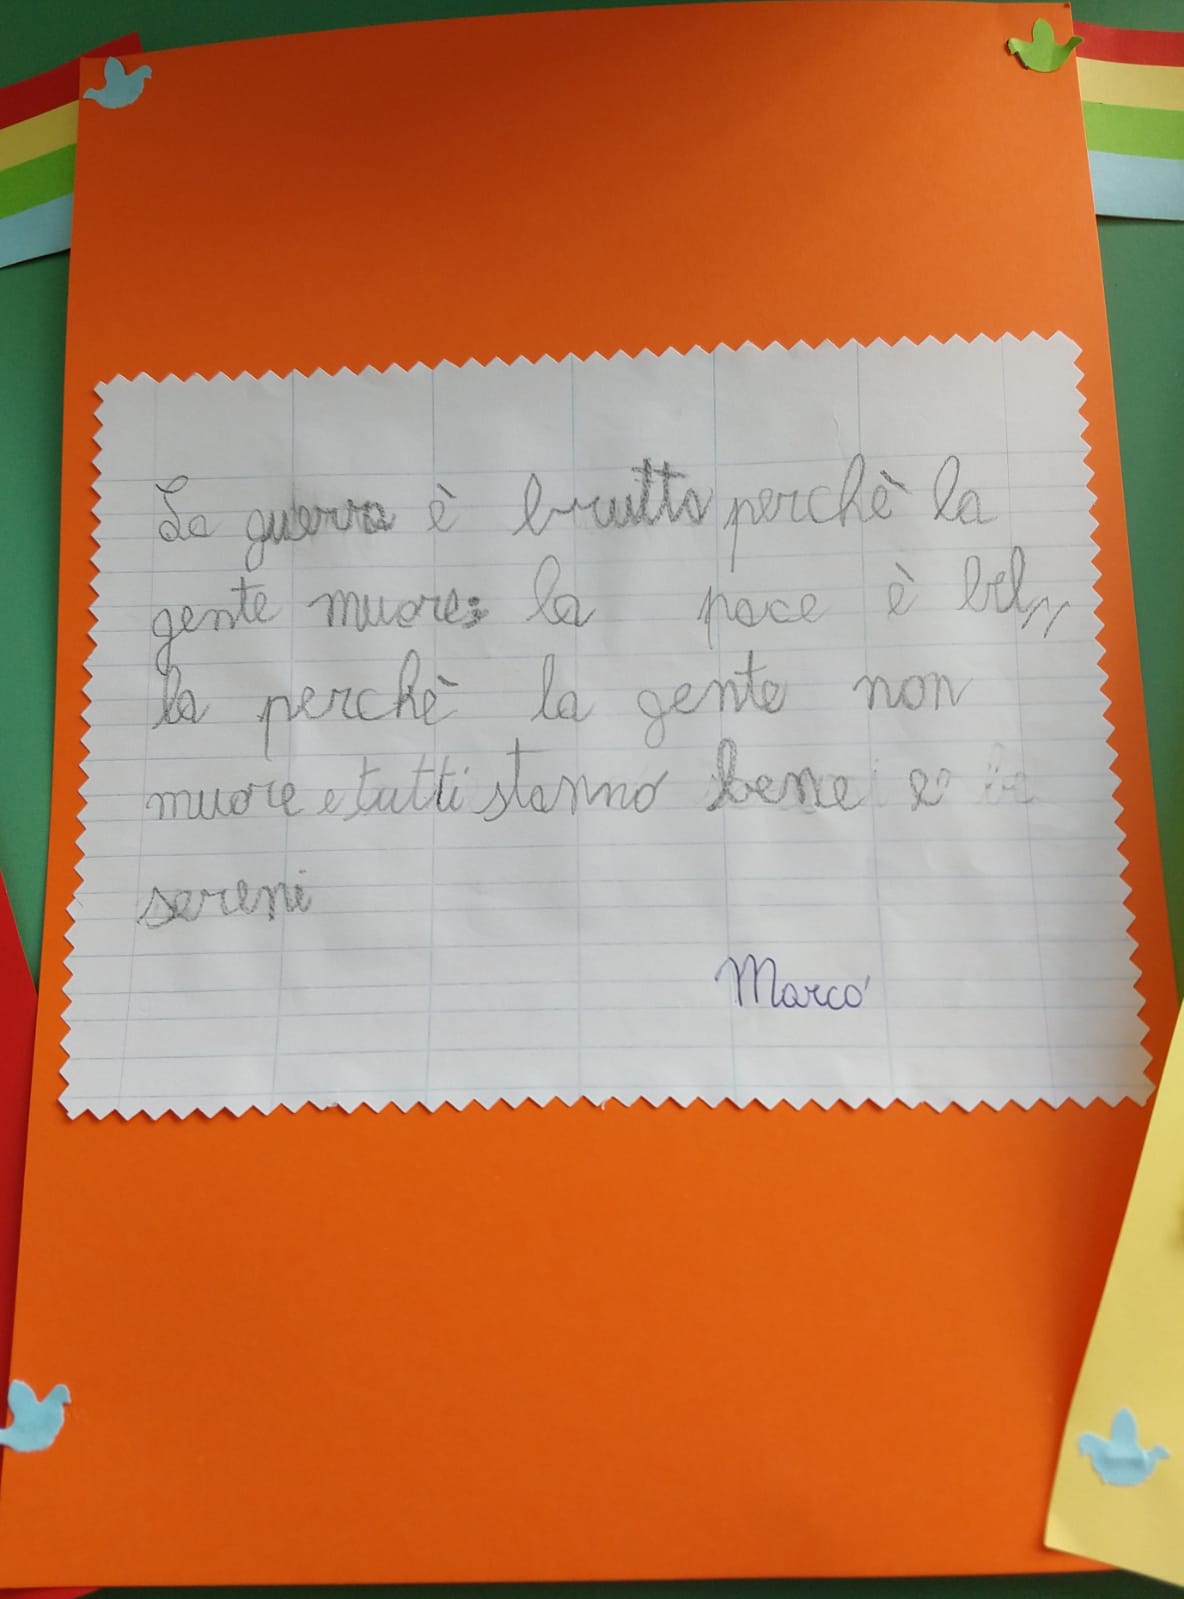 La guerra è brutta perchè la
gente muore; la pace è bel//
la perchè la gente non
muore e tutti stanno bene e
sereni
Marco